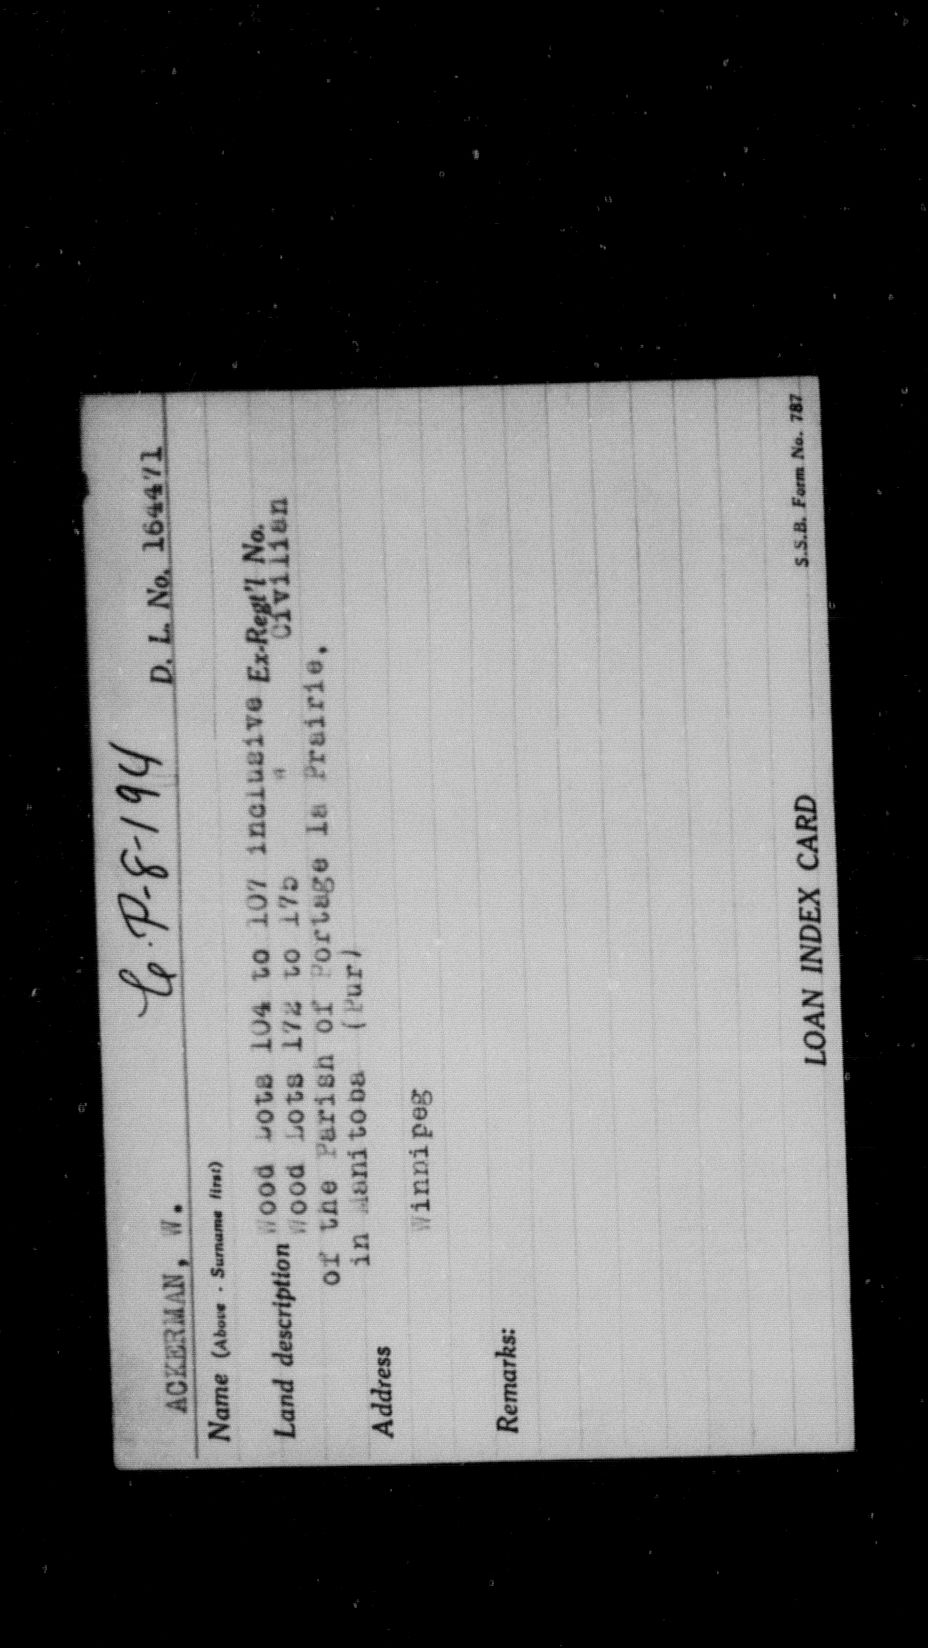 C.P-8-194
ACKERMAN, W. D. L. No. 164471
Name (Above - Surname first)
Land description Wood Lots 104 to 107 inclusive Ex-Reg't'l No.
Wood Lots 172 to 175 " Civilian
of the Parish of Portage la Prairie,
in Manitoba (Pur)
Address
Winnipeg
Remarks:
LOAN INDEX CARD
S.S.B. Form No. 787